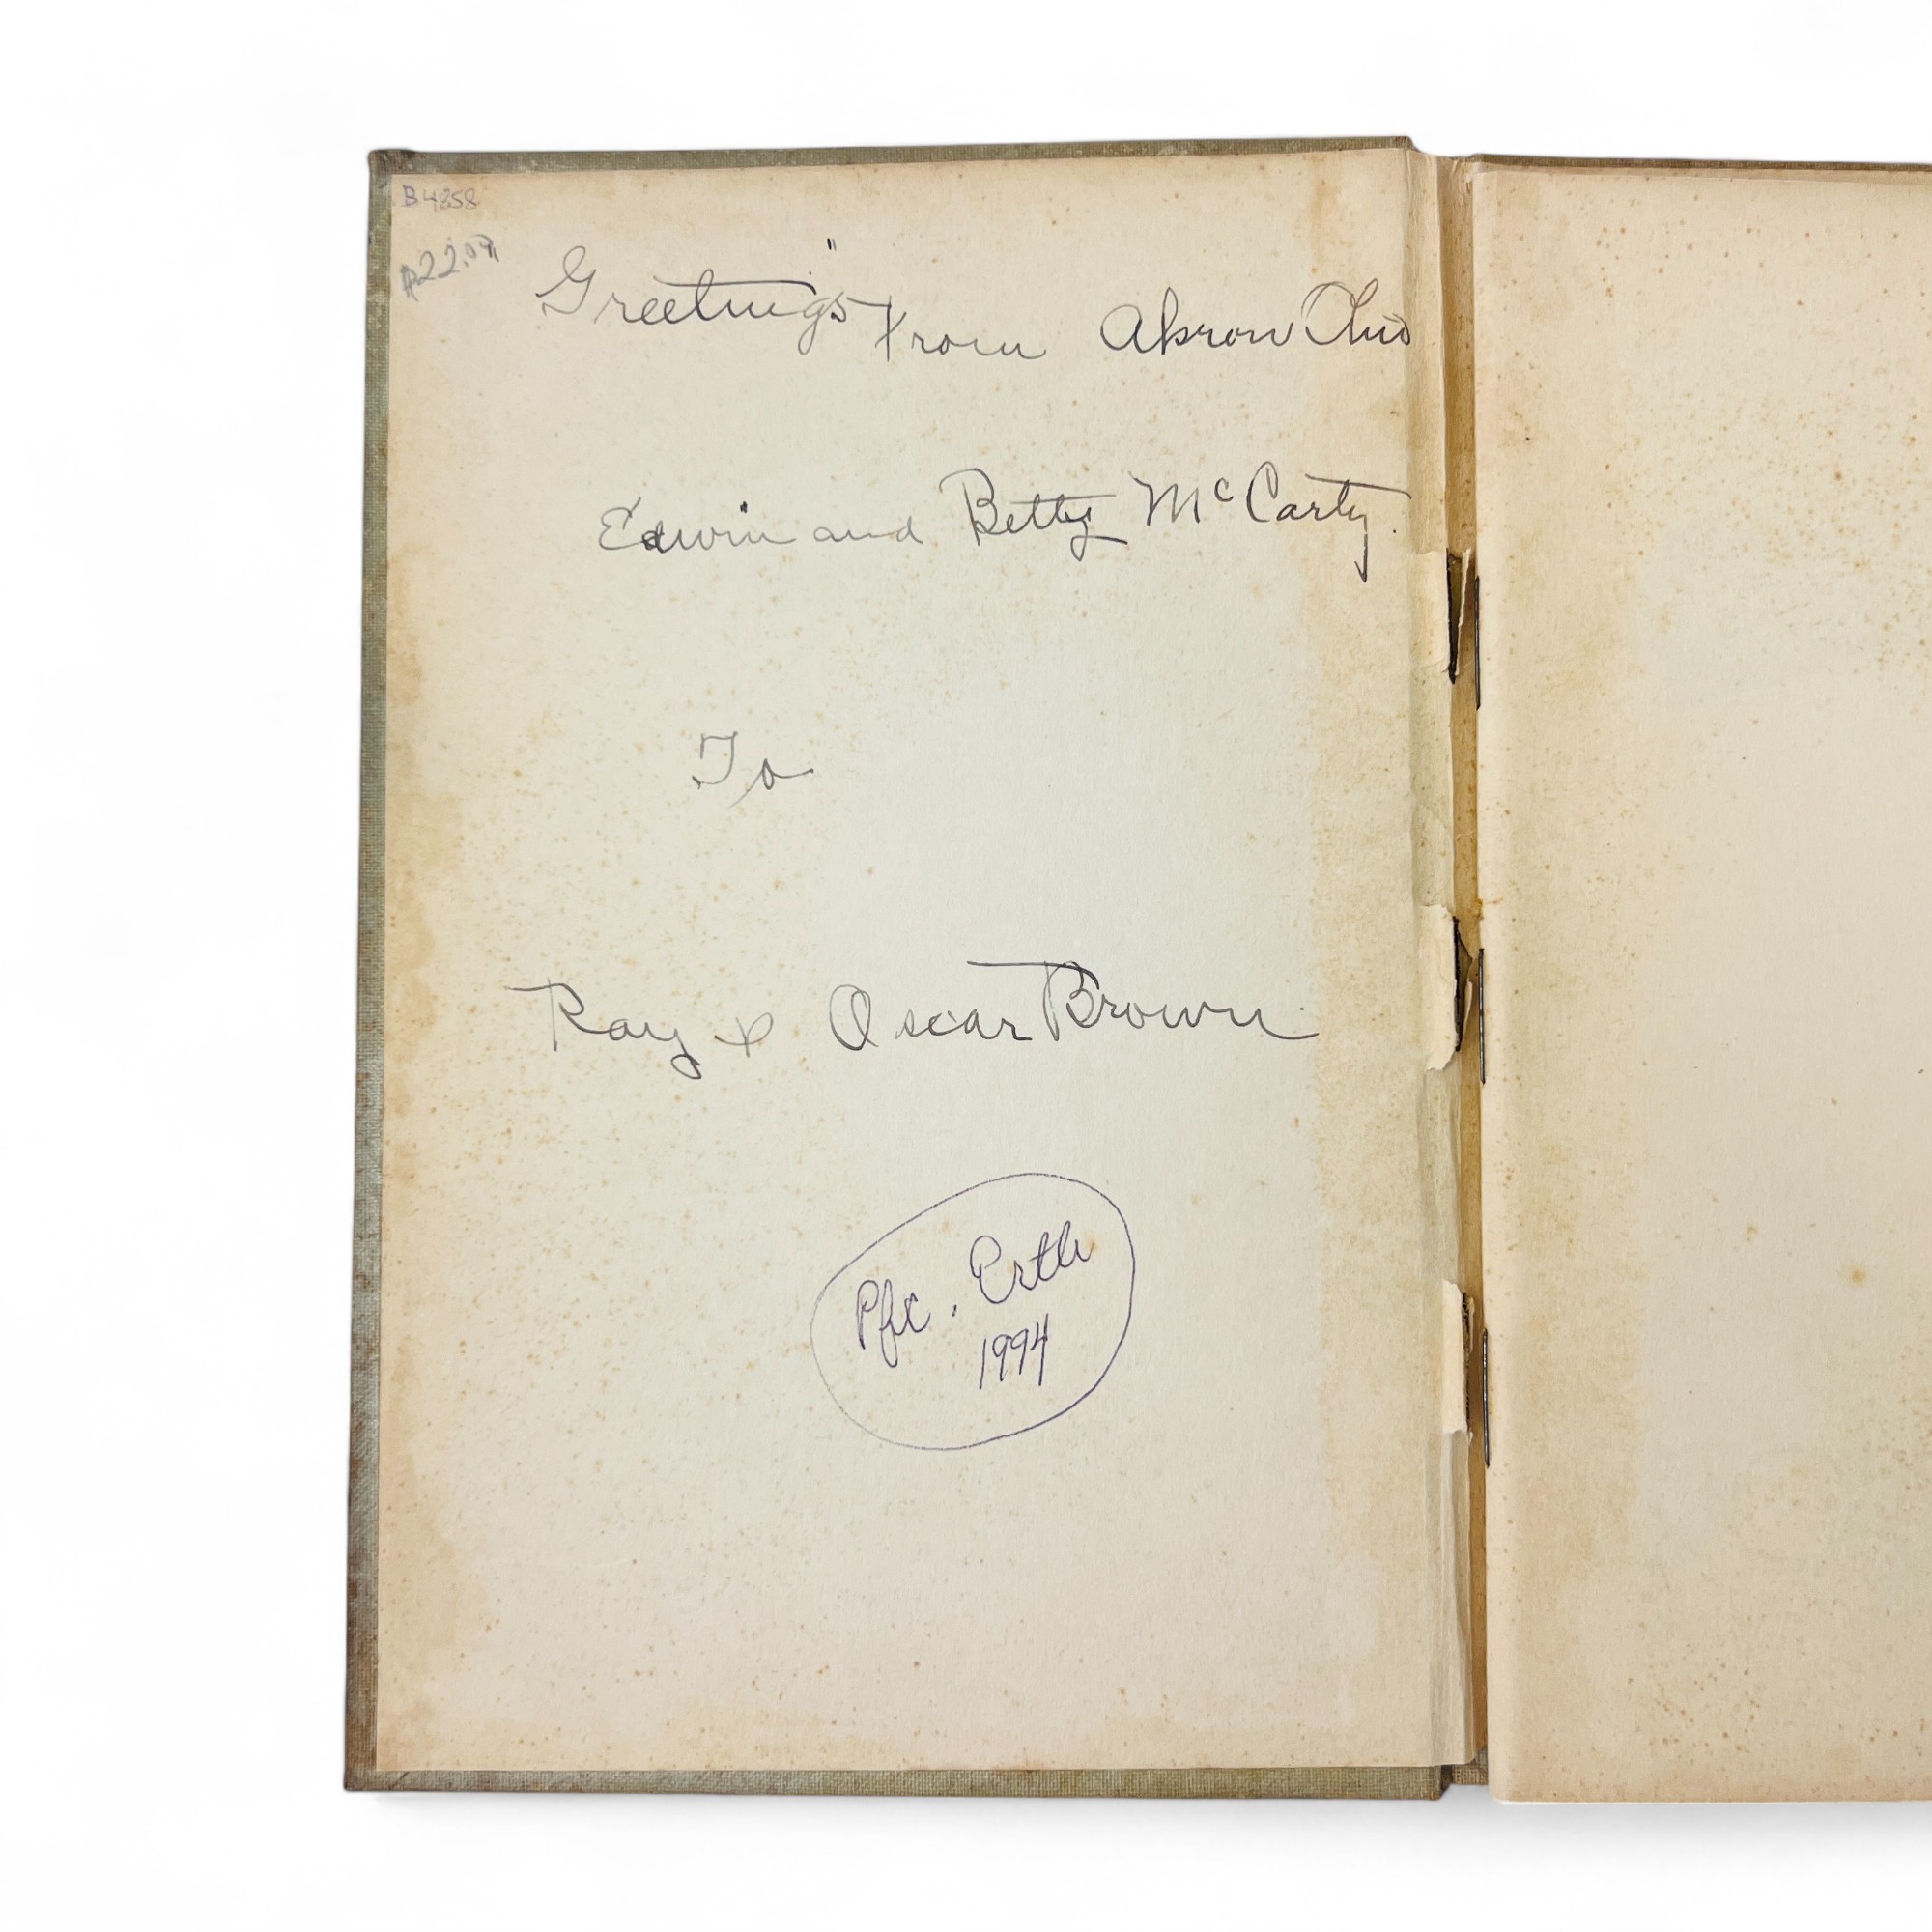 B4858
Greetings from Akron Ohio
Edwin and Betty McCarty.
To
Ray & Oscar Brown
Pfc. Ertle
1994